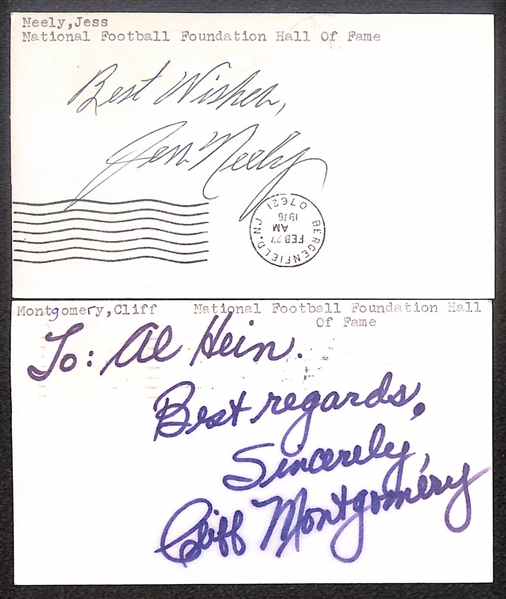 Neely,Jess
National Football Foundation Hall Of Fame
Best Wishes,
Jess Neely
BERGENFIELD, NJ
FEB 27
AM
1976
07621
Montgomery,Cliff National Football Foundation Hall
Of Fame
To: Al Hein.
Best regards,
Sincerely,
Cliff Montgomery